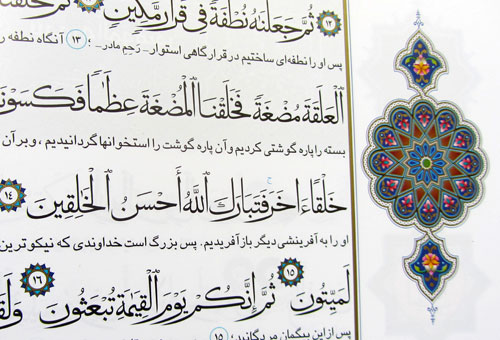 ١٣ ثُمَّ جَعَلْنَٰهُ نُطْفَةً فِى قَرَارٍ مَّكِينٍ
پس او را نطفه‌ای ساختیم در قرارگاهی استوار ـ رَحِمِ مادر ـ ؛ ١٣ آنگاه نطفه را
ٱلْعَلَقَةَ مُضْغَةً فَخَلَقْنَا ٱلْمُضْغَةَ عِظَٰمًا فَكَسَوْنَا
بسته را پاره گوشتی کردیم و آن پاره گوشت را استخوانها گردانیدیم ، و بر آن
خَلْقًا ءَاخَرَ فَتَبَارَكَ ٱللَّهُ أَحْسَنُ ٱلْخَٰلِقِينَ ١٤
او را به آفرینشی دیگر باز آفریدیم. پس بزرگ است خداوندی که نیکوترین
لَمَيِّتُونَ ١٥ ثُمَّ إِنَّكُمْ يَوْمَ ٱلْقِيَٰمَةِ تُبْعَثُونَ ١٦
پس از این بیگمان مردگانید؛ ١٥